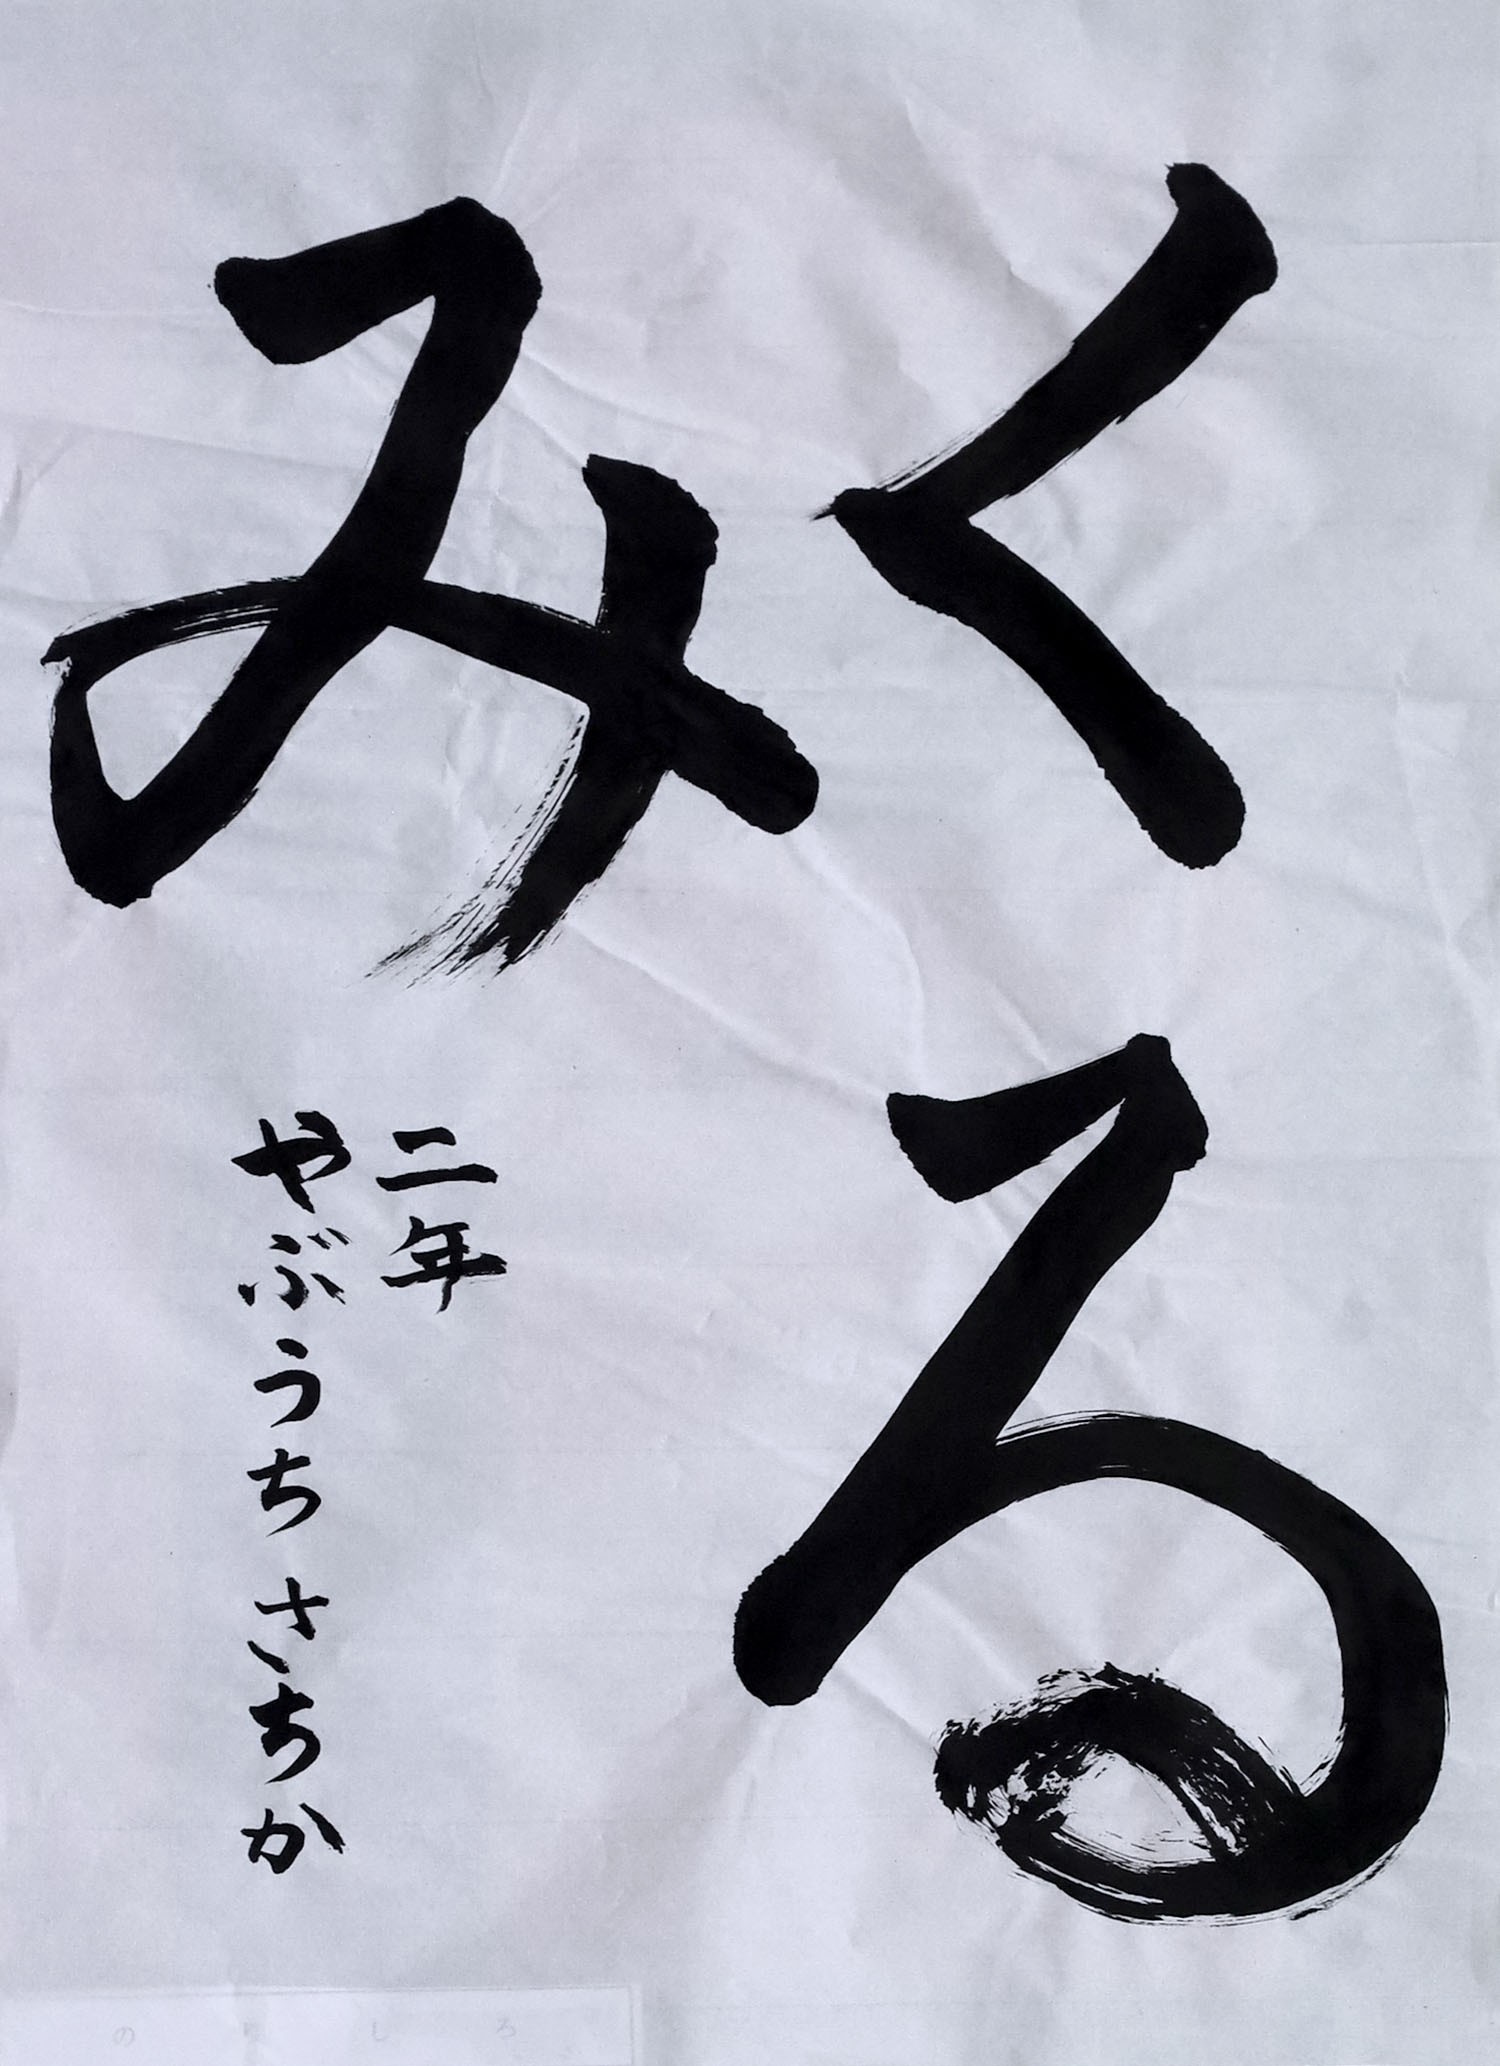 くる
み
二年
やぶうち さちか
のりしろ